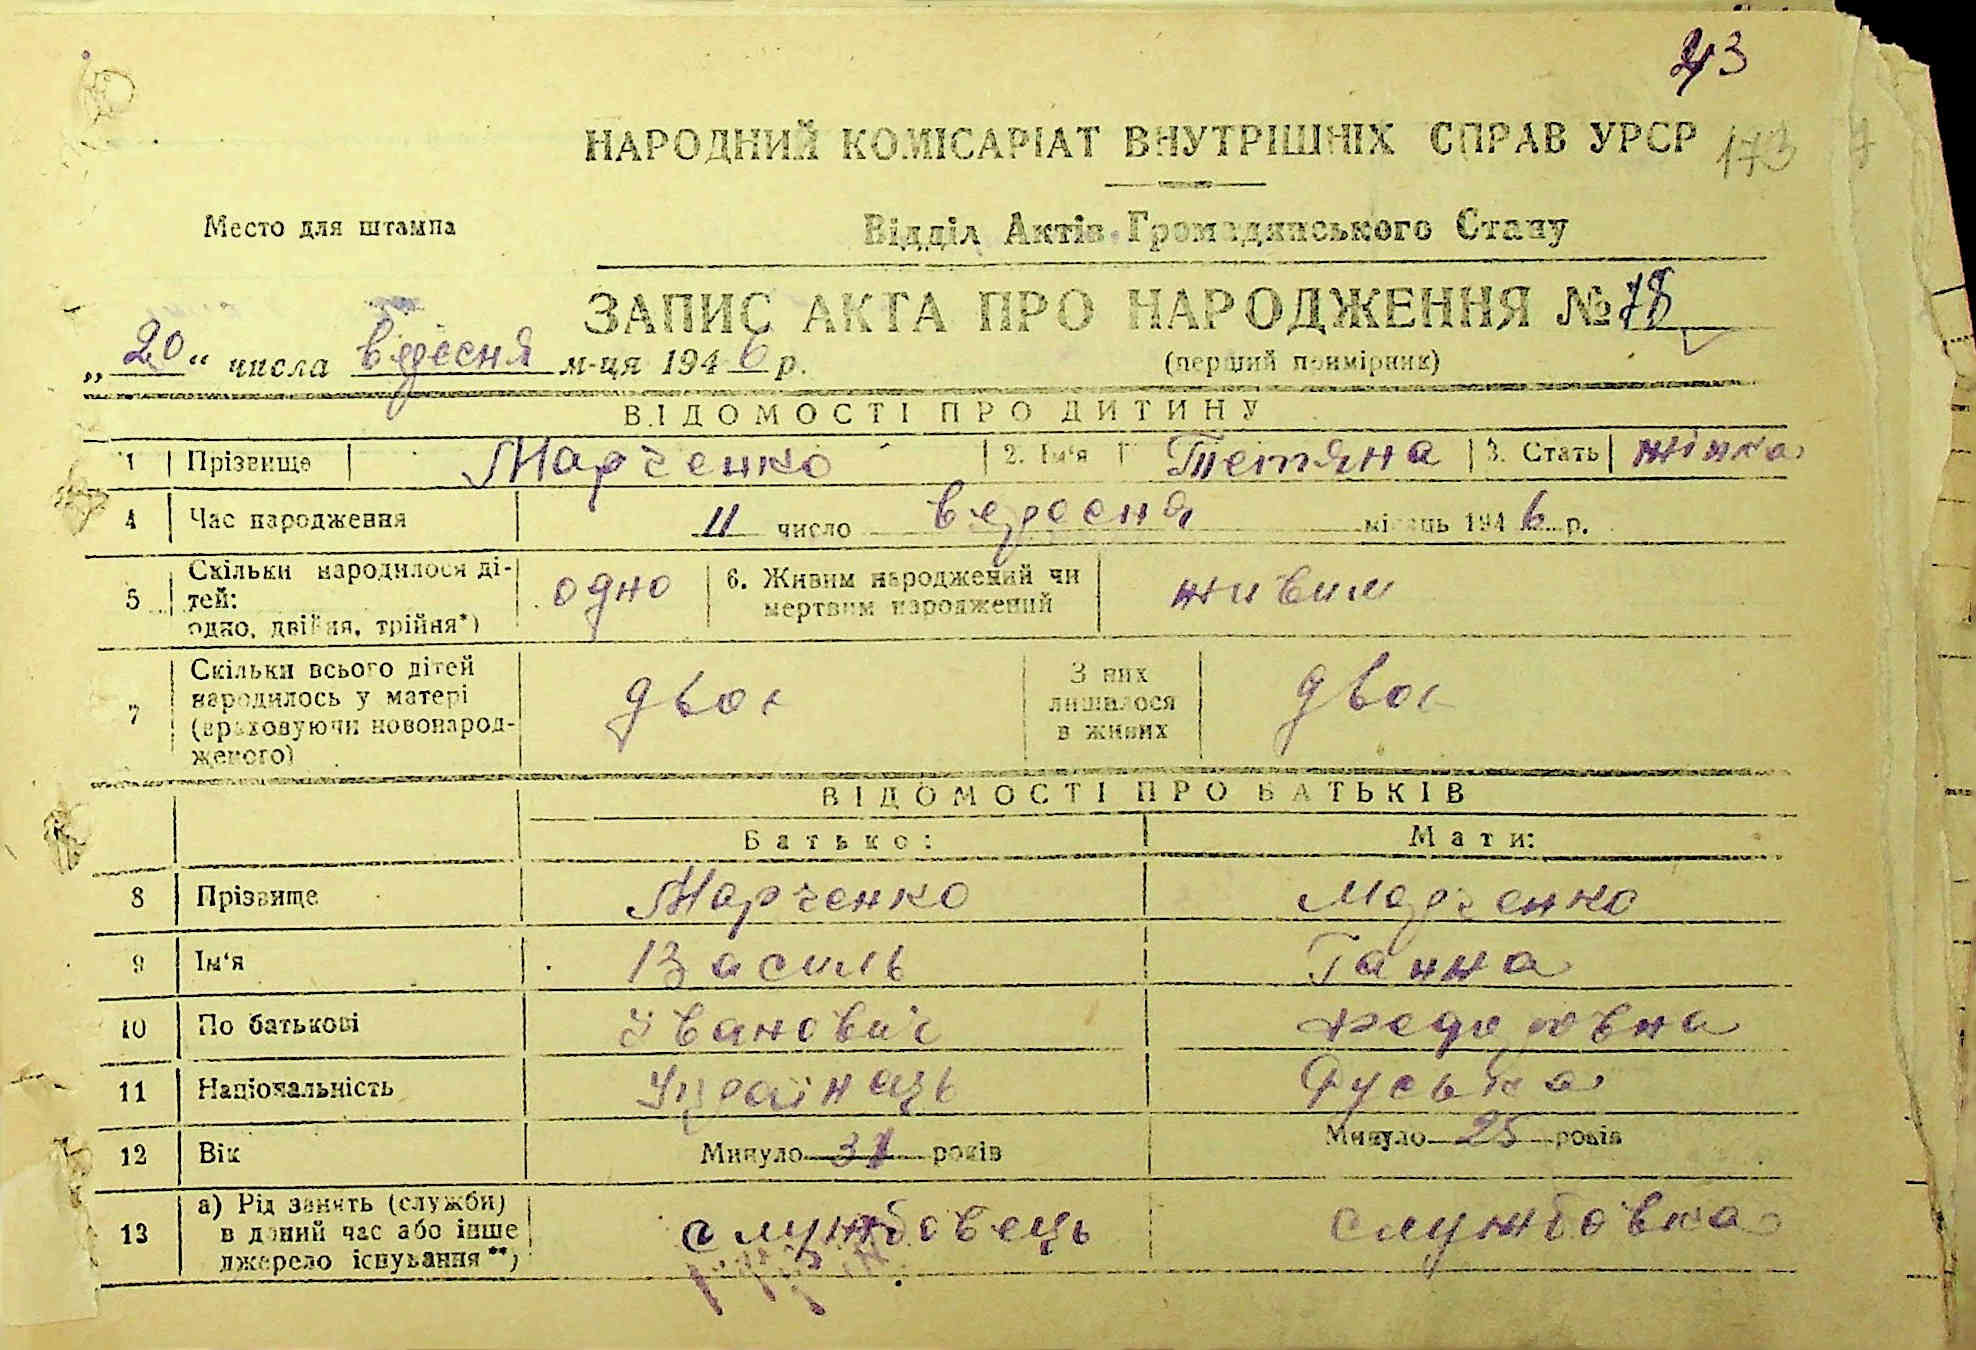 43
НАРОДНИЙ КОМІСАРІАТ ВНУТРІШНІХ СПРАВ УРСР 173
Место для штампа
Відділ Актів Громадянського Стану
ЗАПИС АКТА ПРО НАРОДЖЕННЯ № 78
„20“ числа вересня м-ця 1946 р.
(перший примірник)
ВІДОМОСТІ ПРО ДИТИНУ
1 Прізвище Марченко 2. Ім'я Тетяна 3. Стать жінка
4 Час народження 11 число вересня місяць 1946 р.
5 Скільки народилося ді-
тей:
одно, двійня, трійня*) одно 6. Живим народжений чи
мертвим народжений живим
7 Скільки всього дітей
народилось у матері
(враховуючи новонарод-
женого) двоє З них
лишилося
в живих двоє
ВІДОМОСТІ ПРО БАТЬКІВ
Батько: Мати:
8 Прізвище Марченко Марченко
9 Ім'я Василь Ганна
10 По батькові Іванович Федоровна
11 Національність Українець Руська
12 Вік Минуло 31 років Минуло 25 років
13 а) Рід занять (служби)
в даний час або інше
джерело існування**) службовець службовка